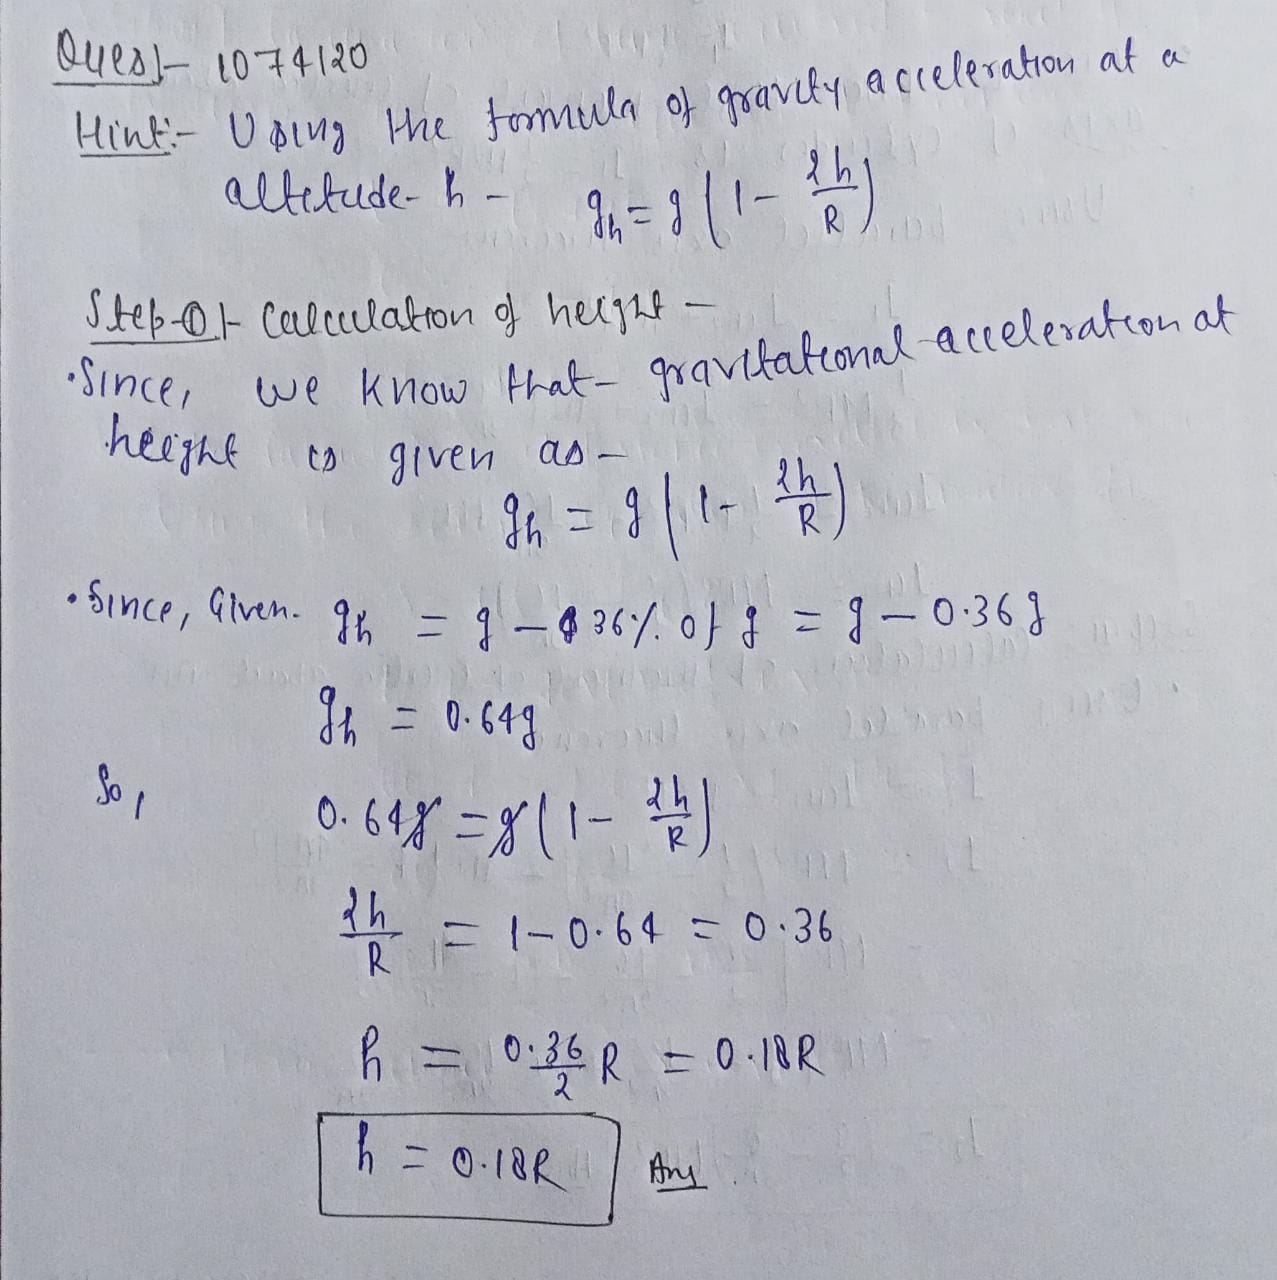 Ques:- 1074120
Hint:- Using the formula of gravity acceleration at a
altitude- h - gₕ = g(1 - 2h/R)
Step-01- Calculation of height -
• Since, we know that - gravitational acceleration at
height is given as -
gₕ = g(1 - 2h/R)
• Since, Given. gₕ = g - 36% of g = g - 0.36g
gₕ = 0.64g
So, 0.64g = g(1 - 2h/R)
2h/R = 1 - 0.64 = 0.36
h = 0.36/2 R = 0.18R
h = 0.18R Ans